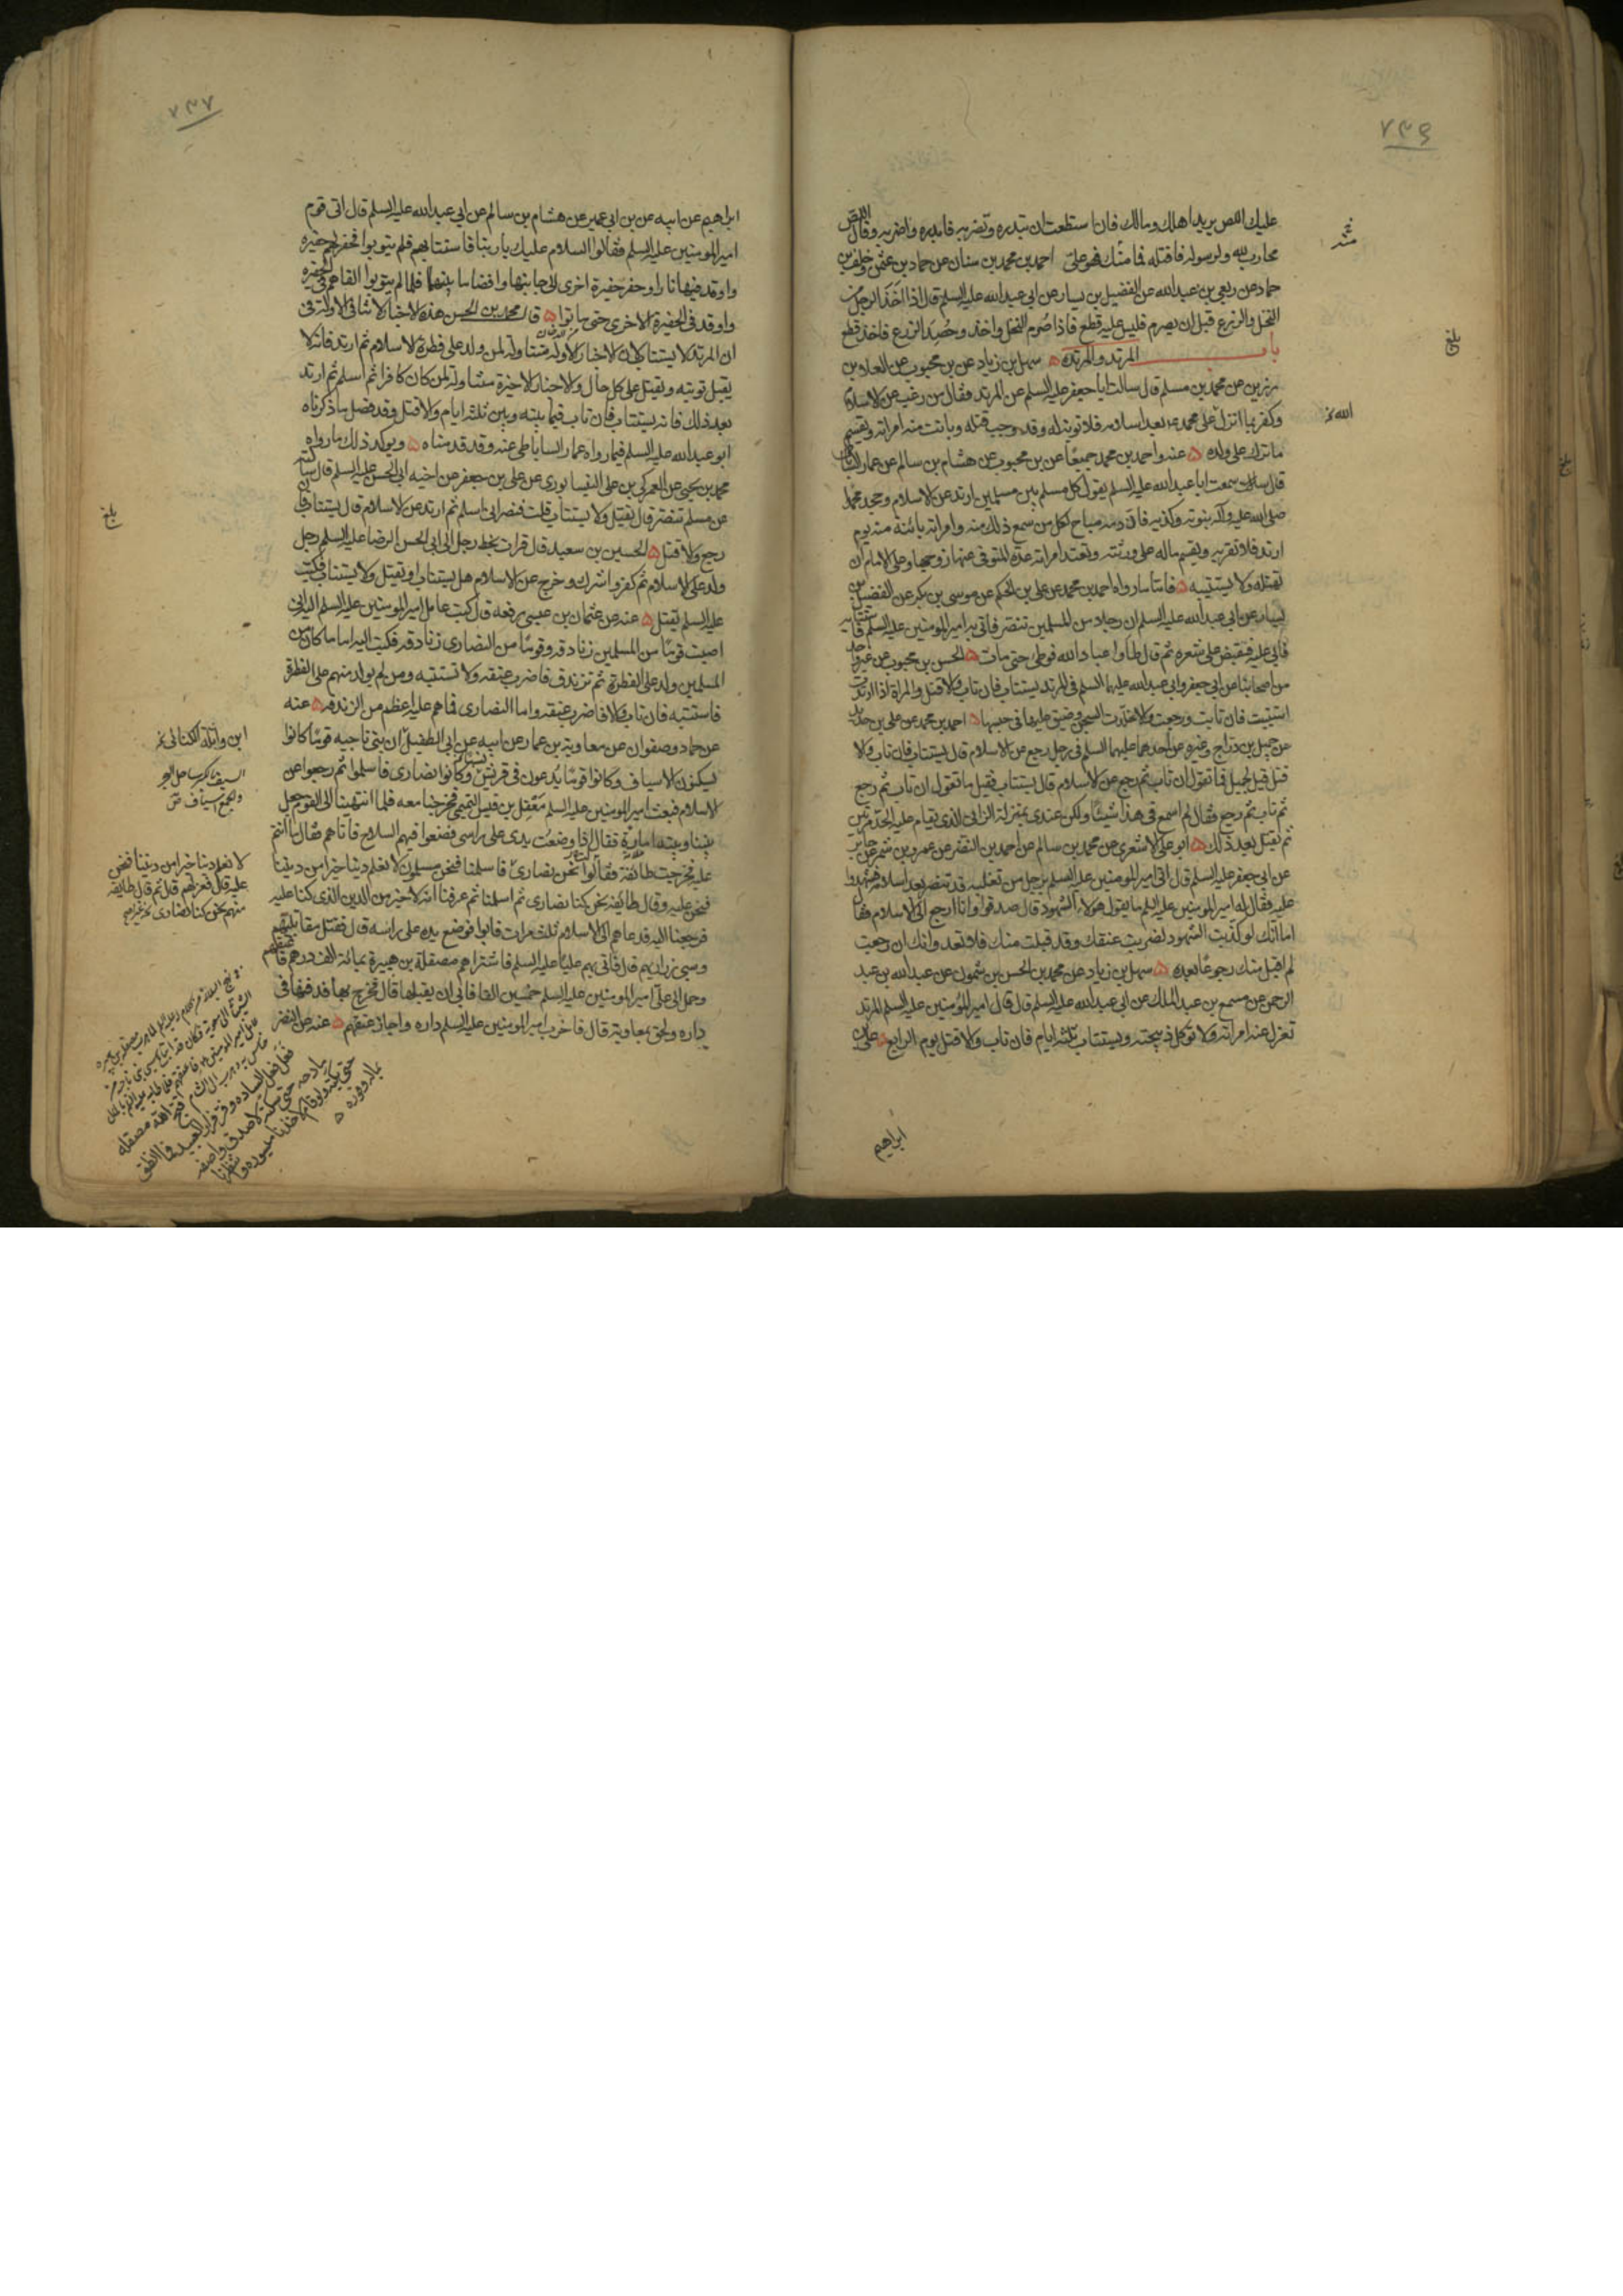 ٧٣٦
عليك اللص يريد اهلك ومالك فان استطعت ان تبدره وتضربه فابدره واضربه وقال اللص
محارب لله ولرسوله فاقتله فما منك فهو علي احمد بن محمد بن سنان عن حماد بن عثمن وخلف بن
حماد عن ربعي بن عبدالله عن الفضيل بن يسار عن ابي عبدالله عليه السلم قال اذا اخذ الرجل من
النخل والزرع قبل ان يصرم فليس عليه قطع فاذا صُرم النخل واخذ وحُصِد الزرع فاخذ قطع
باب المرتد والمرتده ۵ سهل بن زياد عن بن محبوب عن العلا بن
رزين عن محمد بن مسلم قال سالت ابا جعفر عليه السلم عن المرتد فقال من رغب عن الاسلام
وكفر بما انزل على محمد بعد اسلامه فلا توبة له وقد وجب قتله وبانت منه امراته ويقسم
ما ترك على ولده ۵ عنه واحمد بن محمد جميعًا عن بن محبوب عن هشام بن سالم عن عمار الساباطي
قال سمعت ابا عبدالله عليه السلم يقول كل مسلم بين مسلمين ارتد عن الاسلام وجحد محمدا
صلى الله عليه وآله بنوته وكذبه فان دمه مباح لكل من سمع ذلك منه وامراته بائنة منه يوم
ارتد فلا تقربه ويقسم ماله على ورثته وتعتد امراته عدة المتوفى عنها زوجها وعلى الامام ان
يقتله ولا يستتيبه ۵ فاما ما رواه احمد بن محمد عن علي بن الحكم عن موسى بن بكر عن الفضيل بن
يسار عن ابي عبدالله عليه السلم ان رجلا من المسلمين تنصّر فاتي به امير المومنين عليه السلم فاستتابه
فابى عليه فقبض على شعره ثم قال طأوا عباد الله فوطئ حتى مات ۵ الحسن بن محبوب عن غير واحد
من اصحابنا عن ابي جعفر وابي عبدالله عليهما السلم في المرتد يستتاب فان تاب والا قتل والمراة اذا ارتدت
استتيبت فان تابت ورجعت والا خلدت السجن وضيق عليها في حبسها ۵ احمد بن محمد عن علي بن حديد
عن جميل بن دراج وغيره عن احدهما عليهما السلم في رجل رجع عن الاسلام قال يستتاب فان تاب والا
قتل قيل لجميل فما تقول ان تاب ثم رجع عن الاسلام قال يستتاب فقيل ما تقول ان تاب ثم رجع
ثم تاب ثم رجع فقال لم اسمع في هذا شيئًا ولكن عندي بمنزلة الزاني الذي يقام عليه الحد مرتين
ثم يقتل بعد ذلك ۵ ابو علي الاشعري عن محمد بن سالم عن احمد بن النضر عن عمرو بن شمر عن جابر
عن ابي جعفر عليه السلم قال اتي امير المومنين عليه السلم برجل من تغلبه قد تنصر بعد اسلامه فشهدوا
عليه فقال له امير المومنين عليه السلم ما يقول هولاء الشهود قال صدقوا وانا ارجع الى الاسلام فقال
اما انك لو كذبت الشهود لضربت عنقك وقد قبلت منك فلا تعد وانك ان رجعت
لم اقبل منك رجوعًا بعده ۵ سهل بن زياد عن محمد بن الحسن بن شمون عن عبدالله بن عبد
الرحمن عن مسمع بن عبد الملك عن ابي عبدالله عليه السلم قال قال امير المومنين عليه السلم المرتد
تعزل عنه امراته ولا توكل ذبيحته ويستتاب ثلثة ايام فان تاب والا قتل يوم الرابع ۵ علي بن
ابراهيم
بلغ
الله خ
٧٣٧
ابراهيم عن ابيه عن بن ابي عمير عن هشام بن سالم عن ابي عبدالله عليه السلم قال اتى قوم
امير المومنين عليه السلم فقالوا السلام عليك يا ربنا فاستتابهم فلم يتوبوا فحفر لهم حفيره
واوقد فيها نارا وحفر حفيرة اخرى الى جانبها وافضا ما بينهما فلما لم يتوبوا القاهم في الحفيره
واوقد في الحفيرة الاخرى حتى ماتوا ۵ قال محمد بن الحسن هذه الاخبار لا تنافي الاولة في
ان المرتد لا يستتاب لان الاخبار الاولة متناولة لمن ولد على فطرة الاسلام ثم ارتد فانه لا
يقبل توبته ويقتل على كل حال والاخبار الاخيرة متناولة لمن كان كافرا ثم اسلم ثم ارتد
بعد ذلك فانه يستتاب فان تاب فيما بينه وبين ثلثه ايام والا قتل وقد فصل ما ذكرناه
ابو عبدالله عليه السلم فيما رواه عمار الساباطي عنه وقد قدمناه ۵ ويوكد ذلك ما رواه
محمد بن يحيى عن العمركي بن علي النيسابوري عن علي بن جعفر عن اخيه ابي الحسن عليه السلم قال سالته
عن مسلم تنصّر قال يقتل ولا يستتاب قلت فنصراني اسلم ثم ارتد عن الاسلام قال يستتاب فان
رجع والا قتل ۵ الحسين بن سعيد قال قرات بخط رجل الى ابي الحسن الرضا عليه السلم رجل
ولد على الاسلام ثم كفر واشرك وخرج عن الاسلام هل يستتاب او يقتل ولا يستتاب فكتب
عليه السلم يقتل ۵ عنه عن عثمان بن عيسى رفعه قال كتب عامل امير المومنين عليه السلم اليه اني
اصبت قومًا من المسلمين زنادقه وقومًا من النصارى زنادقه فكتب اليه اما ما كان من
المسلمين ولد على الفطرة ثم تزندق فاضرب عنقه ولا تستتبه ومن لم يولد منهم على الفطرة
فاستتبه فان تاب والا فاضرب عنقه واما النصارى فما هم عليه اعظم من الزندقه ۵ عنه
عن حماد وصفوان عن معاوية بن عمار عن ابيه عن ابي الطفيل ان بني ناجيه قومًا كانوا
يسكنون الاسياف وكانوا قومًا يدعون في قريش نسبا وكانوا نصارى فاسلموا ثم رجعوا عن
الاسلام فبعث امير المومنين عليه السلم معقل بن قيس التميمي فخرجنا معه فلما انتهينا الى القوم جعل
بيننا وبينه امارة فقال اذا وضعت يدي على راسي فضعوا فيهم السلاح فاتاهم فقال ما انتم
عليه فخرجت طائفة فقالوا نحن نصارى فاسلمنا فنحن مسلمون لا نعلم دينا خيرا من ديننا
فنحن عليه وقال طايفه نحن كنا نصارى ثم اسلمنا ثم عرفنا انه لا خير من الدين الذي كنا عليه
فرجعنا اليه فدعاهم الى الاسلام ثلث مرات فابوا فوضع يده على راسه قال فقتل مقاتليهم
وسبى زراريهم قال فاتى بهم عليًا عليه السلم فاشتراهم مصقلة بن هبيرة بمائة الف درهم فاعتقهم
وحمل الى علي امير المومنين عليه السلم خمسين الفا فابى ان يقبلها قال فخرج بها فدفنها في
داره ولحق بمعاوية قال فاخرب امير المومنين عليه السلم داره واجاز عتقهم ۵ عنه عن النضر
بلغ
ابن واثلة الكناني خ
السيف بالكسر ساحل البحر
والجمع اسياف ص
لا نعلم دينا خيرا من ديننا فنحن
عليه قال فعزلهم قال ثم قال طايفه
منهم نحن كنا نصارى